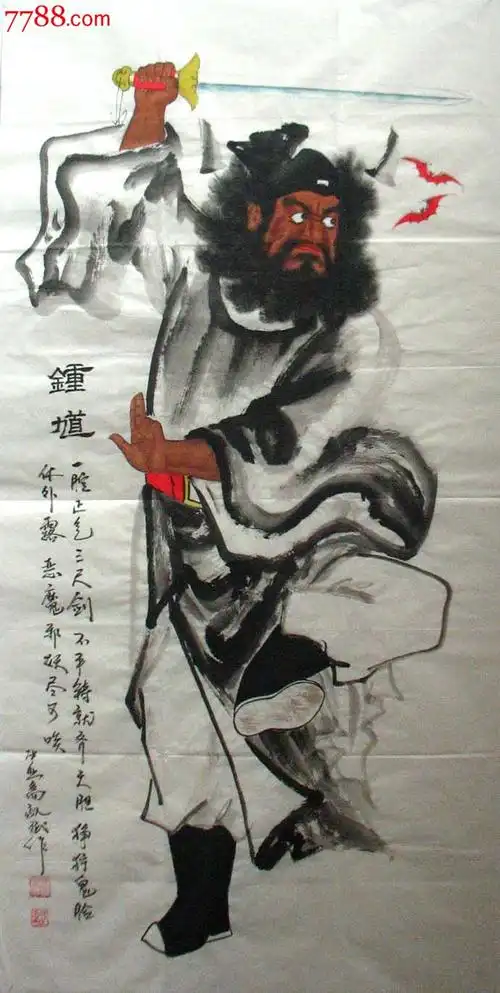 7788.com
鍾馗
一腔正气三尺剑 不平铸就齐天胆 狰狞鬼脸
休外露 恶魔邪妖尽可啖
作